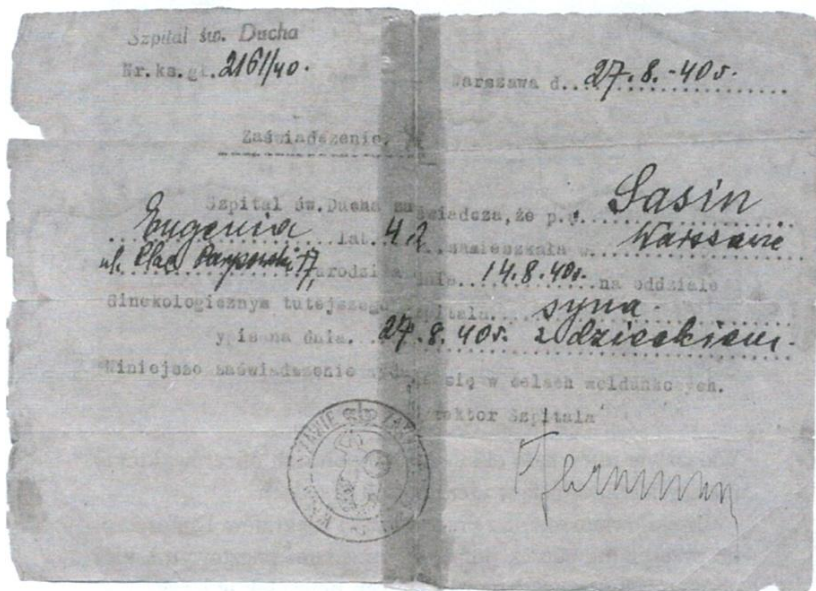 Szpital św. Ducha
Nr.ks.gł. 2161/40. Warszawa d. 27.8.-40r.
Zaświadczenie.
Szpital św.Ducha zaświadcza, że p. Sasin
Eugenia lat 42 zamieszkała w Warszawie
ul. Plac 17, urodziła dnia 14.8.40r. na oddziale
Ginekologicznym tutejszego Szpitala syna.
ypisana dnia. 27.8.40r. z dzieckiem.
Niniejsze zaświadczenie wydaje się w celach meldunkowych.
Dyrektor Szpitala